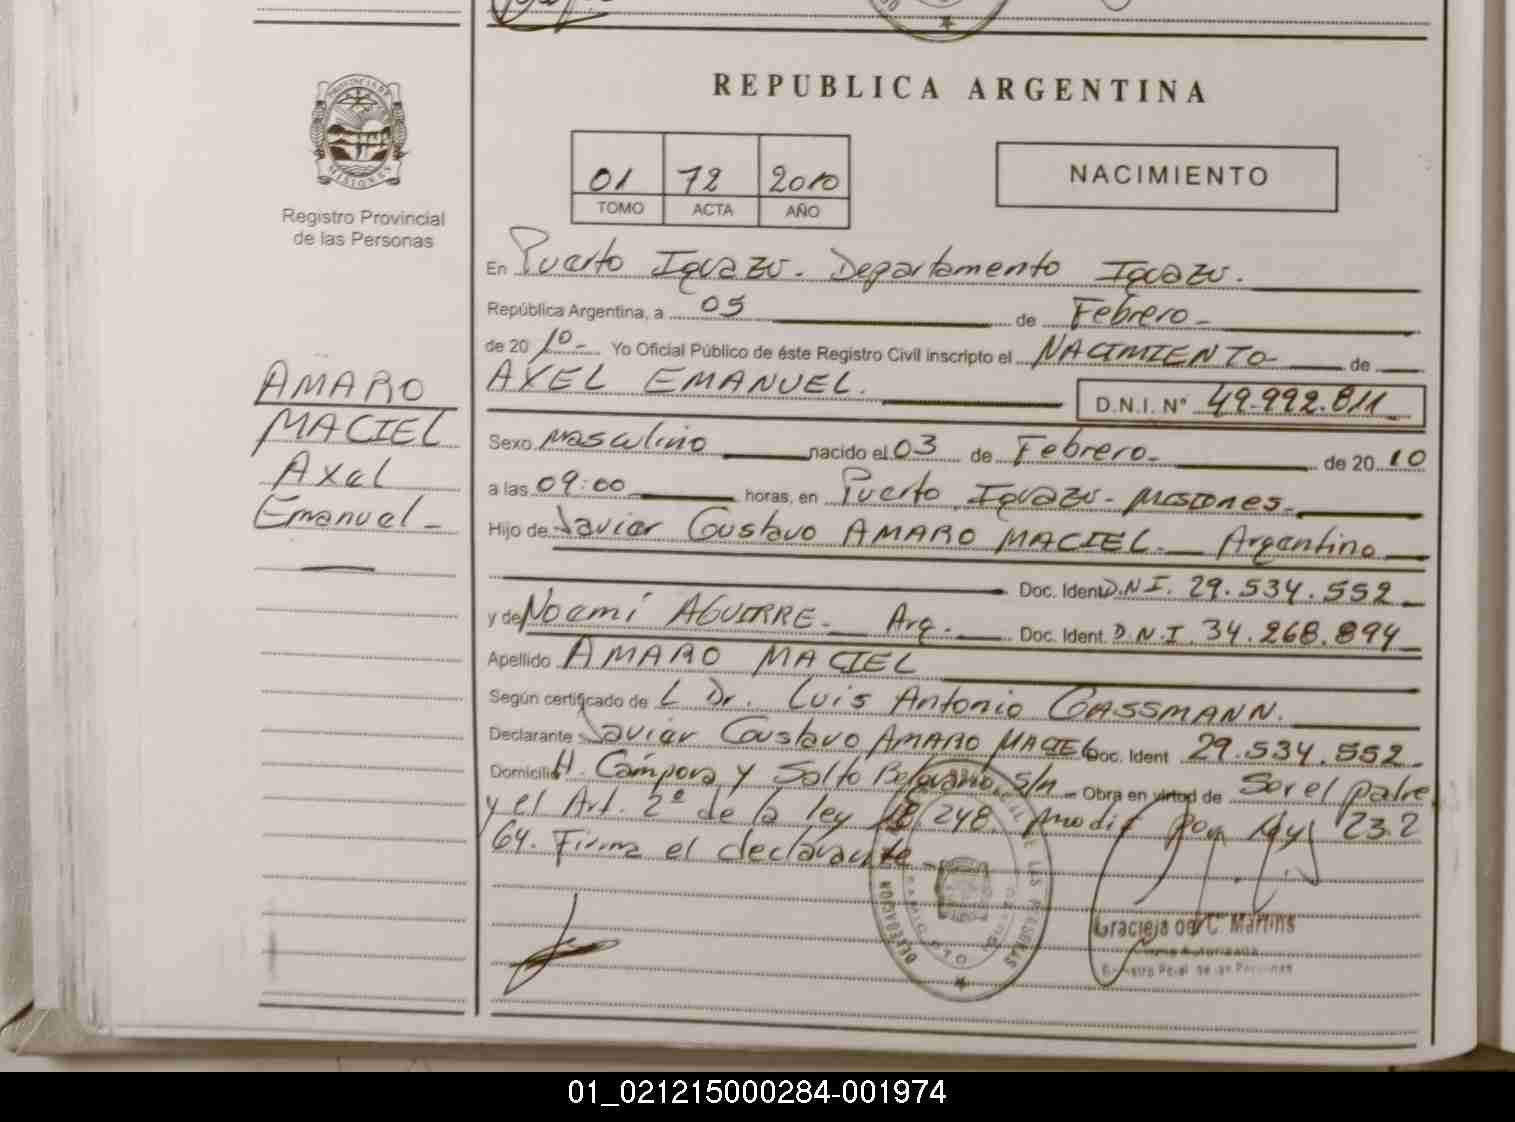 REPUBLICA ARGENTINA
PROVINCIA DE
MISIONES
Registro Provincial
de las Personas
01 72 2010
TOMO ACTA AÑO
NACIMIENTO
En Puerto Iguazu. Departamento Iguazu.
República Argentina, a 05 de Febrero
de 20 10 Yo Oficial Público de éste Registro Civil inscripto el NACIMIENTO de
AXEL EMANUEL. D.N.I. N° 49.992.811
AMARO
MACIEL
Axel
Emanuel
Sexo Masculino nacido el 03 de Febrero de 20 10
a las 09:00 horas, en Puerto Iguazu - Misiones.
Hijo de Javier Gustavo AMARO MACIEL. Argentino
Doc. Ident D.N.I. 29.534.552
y de Noemí AGUIRRE. Arg. Doc. Ident. D.N.I. 34.268.894
Apellido AMARO MACIEL
Según certificado de L Dr. Luis Antonio GASSMANN.
Declarante Javier Gustavo AMARO MACIEL Doc. Ident 29.534.552
Domicilio H. Cámpora y Salto Belgrano s/n Obra en virtud de Ser el padre
y el Art. 2º de la ley 18.248. modif por ley 23.2
64. Firma el declarante
DELEGACION DE LAS PERSONAS
Graciela del C. Martins
Firma Autorizada
Registro Pcial. de las Personas
01_021215000284-001974